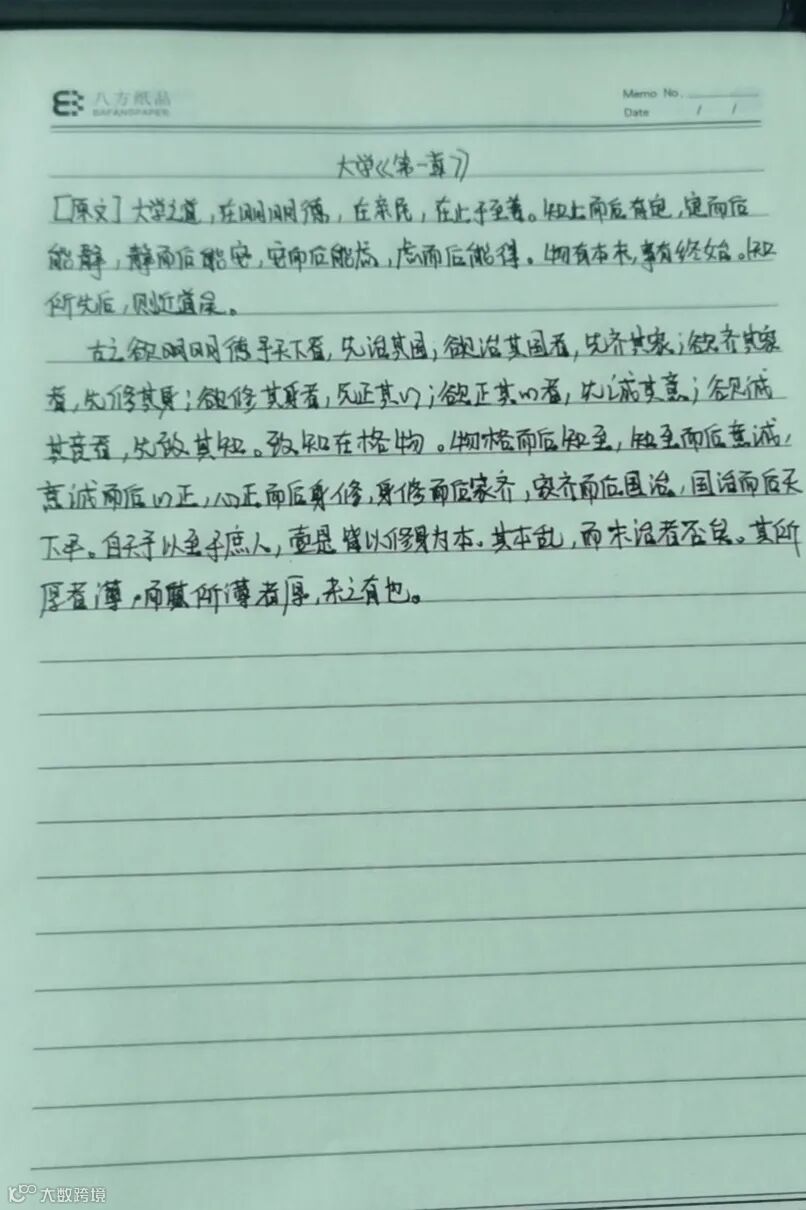 八方纸品
BAFANGPAPER
Memo No.
Date / /
大学《第一章》
[原文] 大学之道，在明明德，在亲民，在止于至善。知止而后有定，定而后
能静，静而后能安，安而后能虑，虑而后能得。物有本末，事有终始。知
所先后，则近道矣。
古之欲明明德于天下者，先治其国；欲治其国者，先齐其家；欲齐其家
者，先修其身；欲修其身者，先正其心；欲正其心者，先诚其意；欲诚
其意者，先致其知。致知在格物。物格而后知至，知至而后意诚，
意诚而后心正，心正而后身修，身修而后家齐，家齐而后国治，国治而后天
下平。自天子以至于庶人，壹是皆以修身为本。其本乱，而末治者否矣。其所
厚者薄，而其所薄者厚，未之有也。
大数跨境